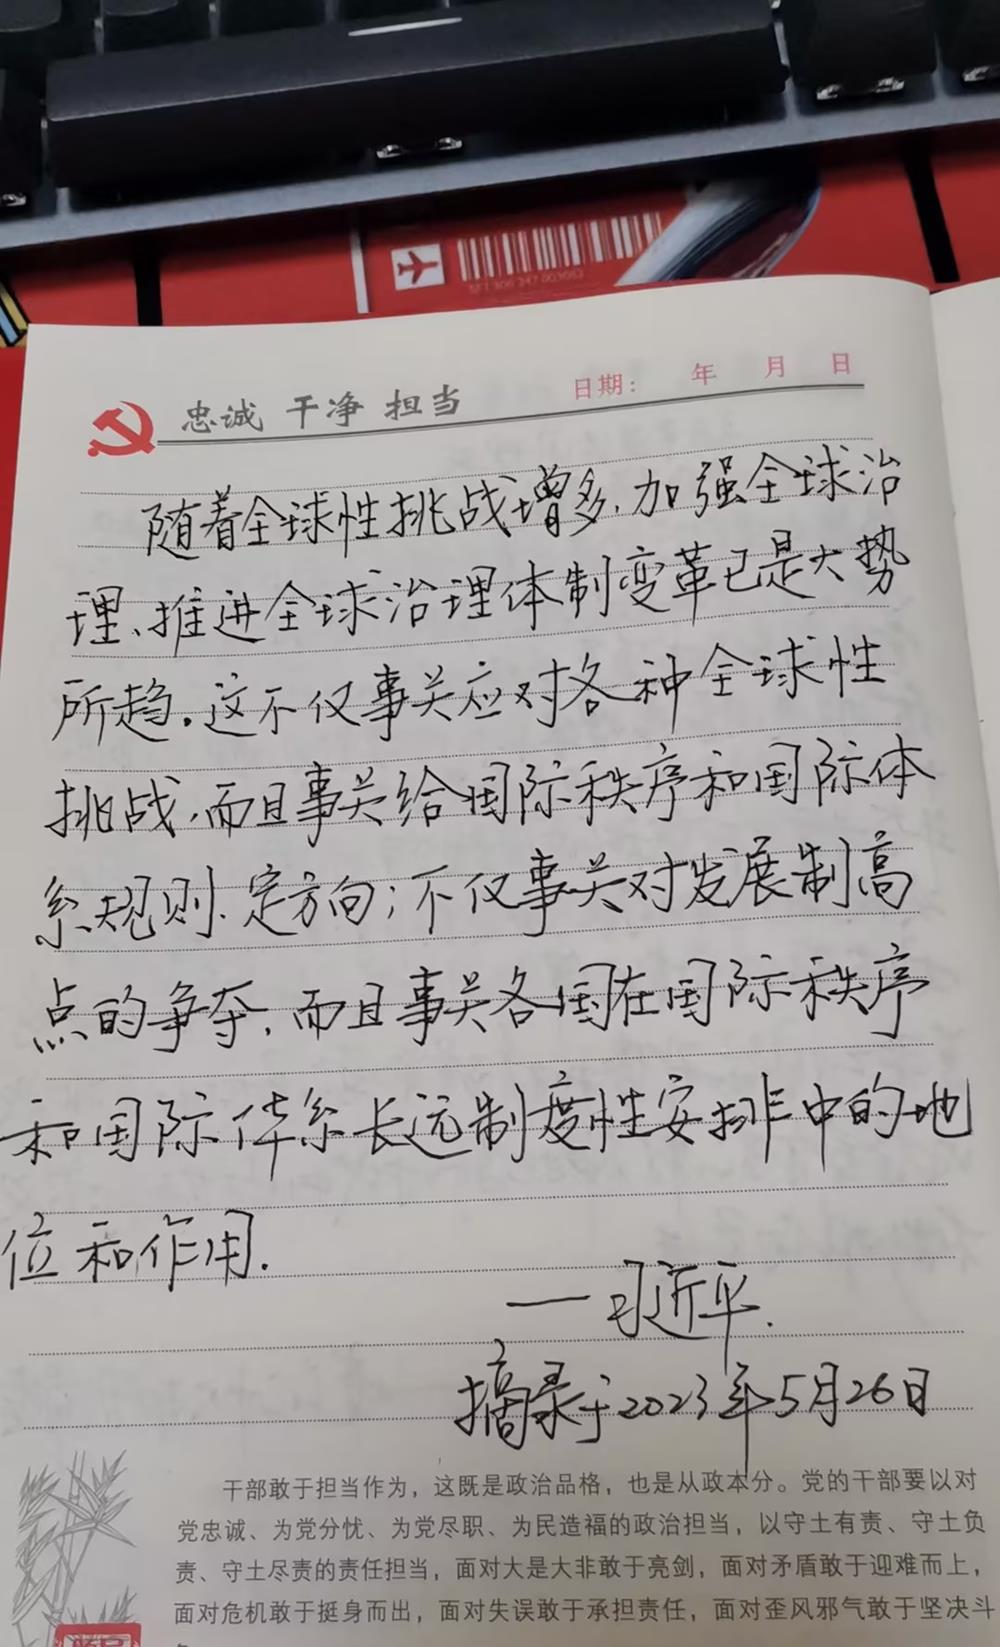 SET 306 347 003063
忠诚 干净 担当
日期： 年 月 日
随着全球性挑战增多,加强全球治
理、推进全球治理体制变革已是大势
所趋。这不仅事关应对各种全球性
挑战,而且事关给国际秩序和国际体
系规则、定方向;不仅事关对发展制高
点的争夺,而且事关各国在国际秩序
和国际体系长远制度性安排中的地
位和作用.
——习近平.
摘录于2023年5月26日
干部敢于担当作为，这既是政治品格，也是从政本分。党的干部要以对
党忠诚、为党分忧、为党尽职、为民造福的政治担当，以守土有责、守土负
责、守土尽责的责任担当，面对大是大非敢于亮剑，面对矛盾敢于迎难而上，
面对危机敢于挺身而出，面对失误敢于承担责任，面对歪风邪气敢于坚决斗